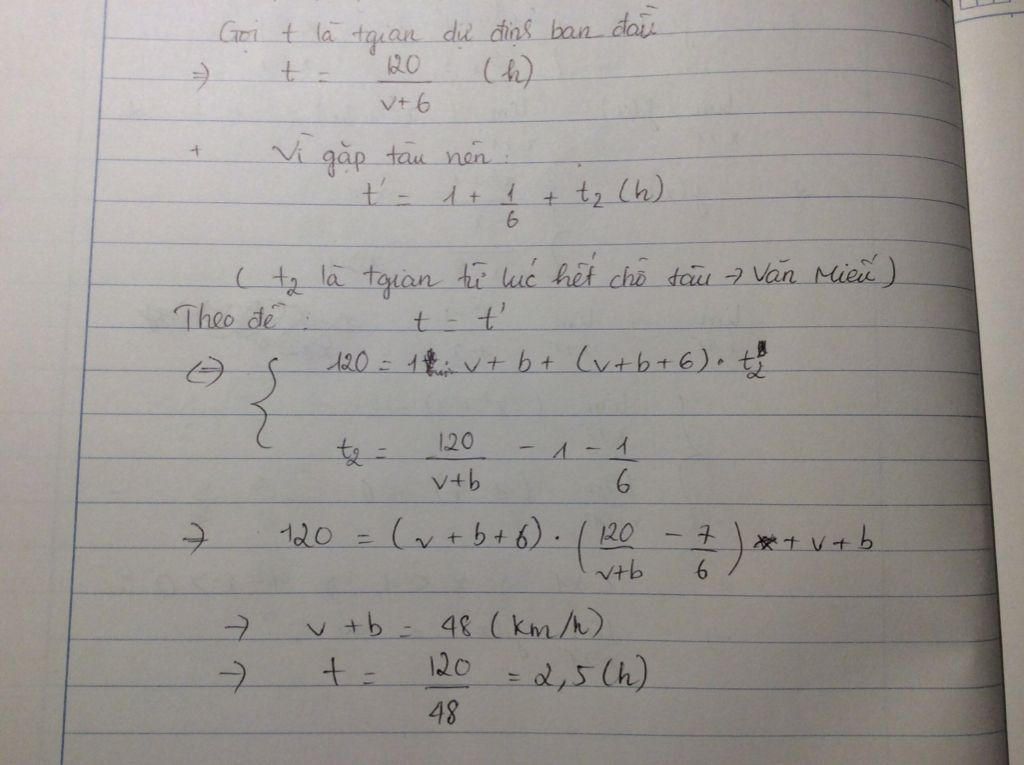 Gọi t là tgian dự định ban đầu
⇒ t = 120/(v+6) (h)
+ Vì gặp tàu nên :
t' = 1 + 1/6 + t₂ (h)
( t₂ là tgian từ lúc hết chờ tàu → Văn Miếu )
Theo đề : t = t'
⇔ { 120 = 1 . v + b + (v+b+6) . t₂
t₂ = 120/(v+b) - 1 - 1/6
⇒ 120 = (v+b+6) . (120/(v+b) - 7/6) + v + b
→ v + b = 48 (km/h)
→ t = 120/48 = 2,5 (h)